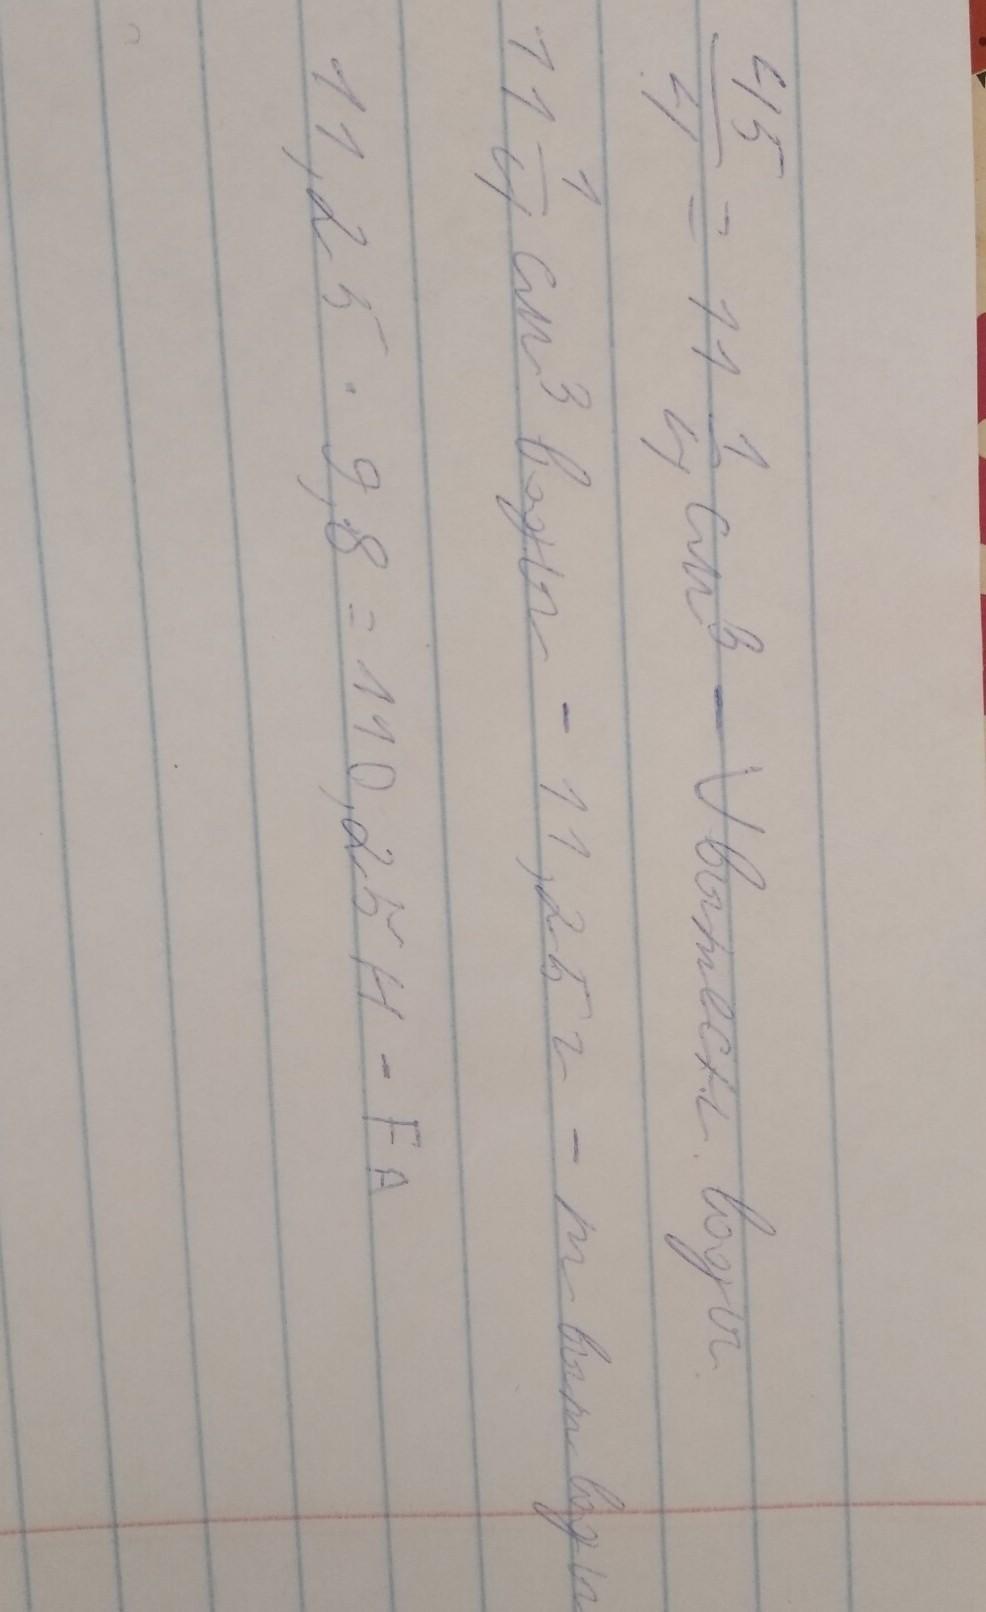 45/4 = 11 1/4 см³ - V вытесн. воды.
11 1/4 см³ воды - 11,25 г - m выт воды
11,25 · 9,8 = 110,25 Н - FA